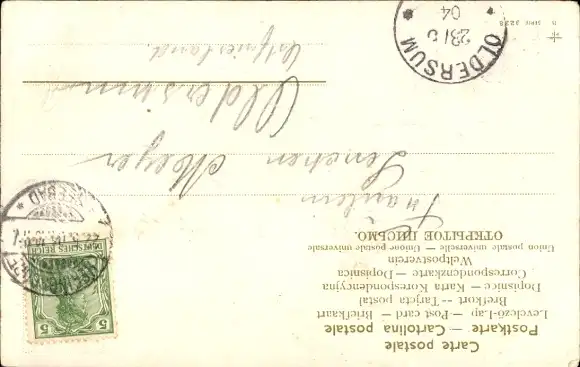 Carte postale
Postkarte — Cartolina postale
Levelező-Lap — Post-card — Briefkaart
Brefkort -- Tarjeta postal
Dopisnice — Karta Korespondencyjna
Correspondenzkarte — Dopisnica
Weltpostverein
Union postale universelle — Unione postale universale
ОТКРЫТОЕ ПИСЬМО.
Fräulein
Lenchen Meyer
Oldersum
Ostfriesland.
5
DEUTSCHES REICH
SEEBAD
OLDERSUM
23/5
04